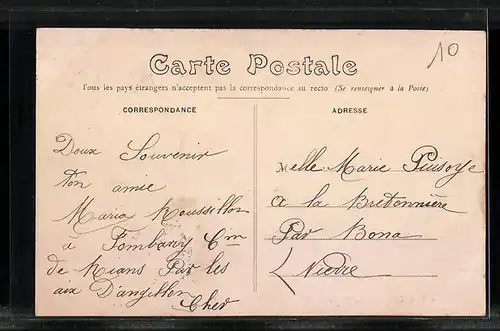 10
Carte Postale
Tous les pays étrangers n'acceptent pas la correspondance au recto (Se renseigner à la Poste)
CORRESPONDANCE
Doux Souvenir
ton amie
Maria Roussillon
à Cm
de Rians Par les
aix D'angillon
Cher
ADRESSE
Melle Marie
a la Bretonnière
Par Bona
Nièvre